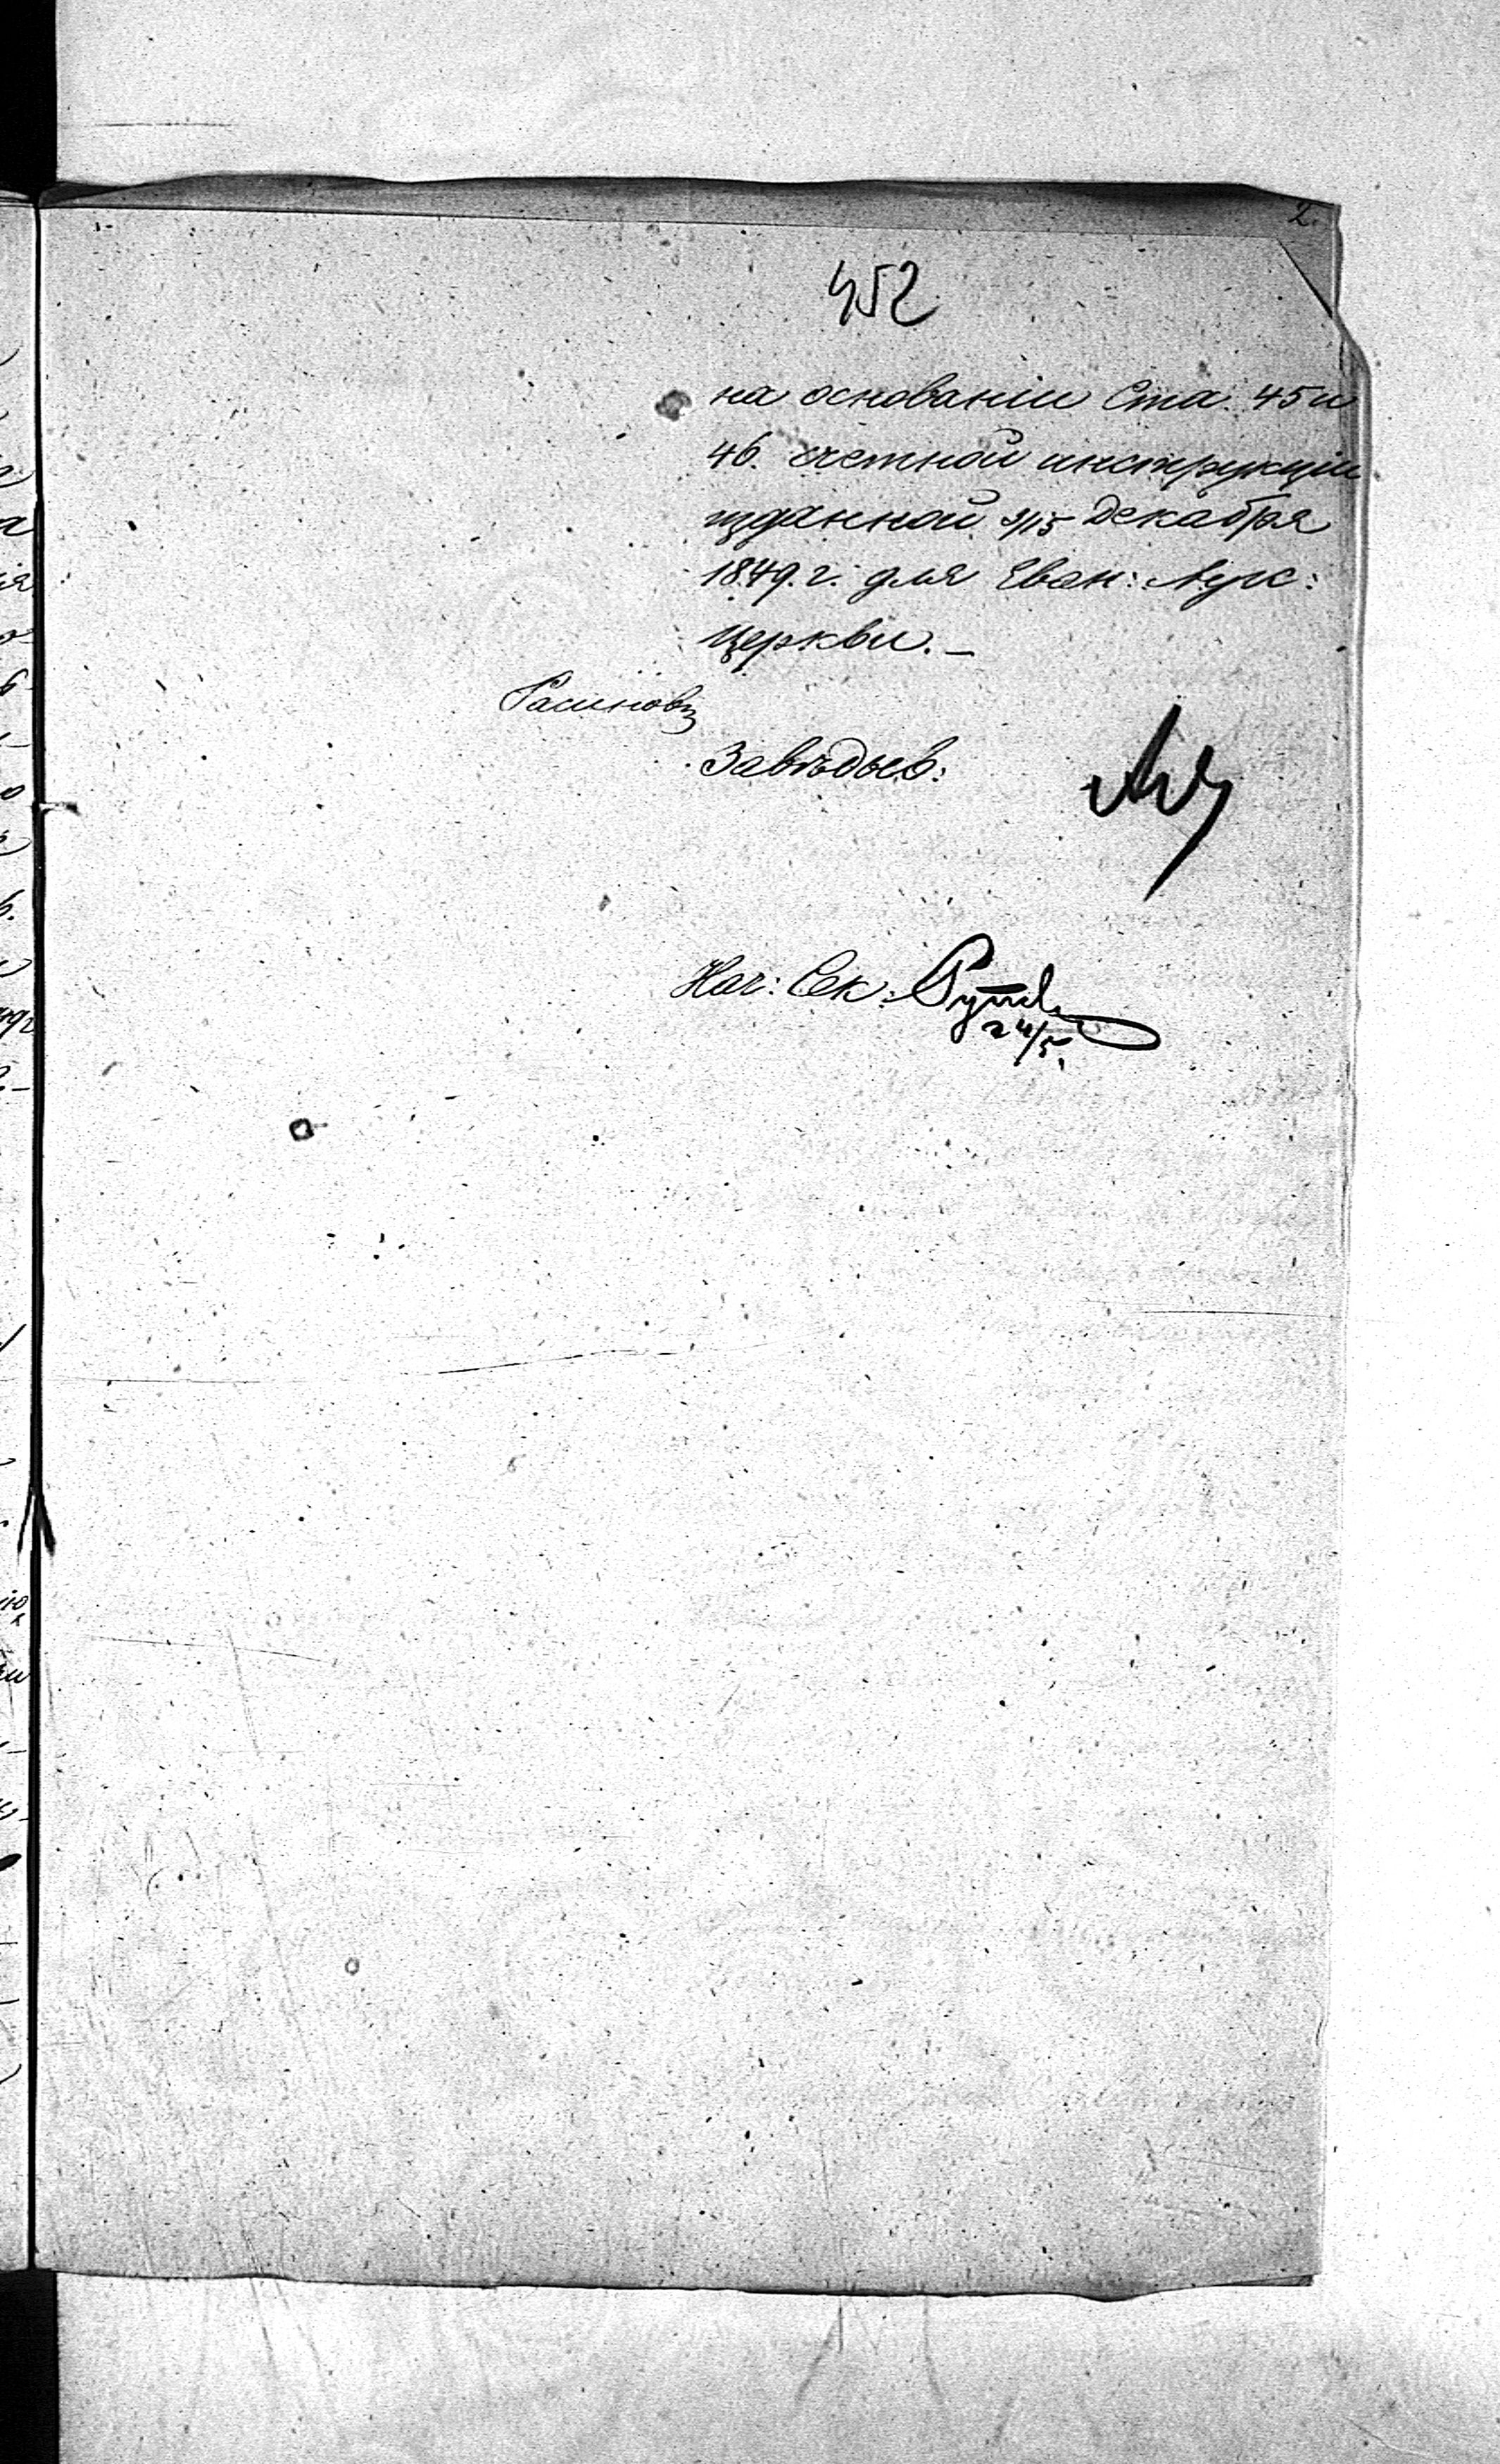 2.
452
на основаніи Ста. 45 и
46. счетной инструкціи
изданной 3/15 Декабря
1849. г. для Еван: Аугс:
Церкви. –
Завѣдыв:
Нач: Сек:
24/5.